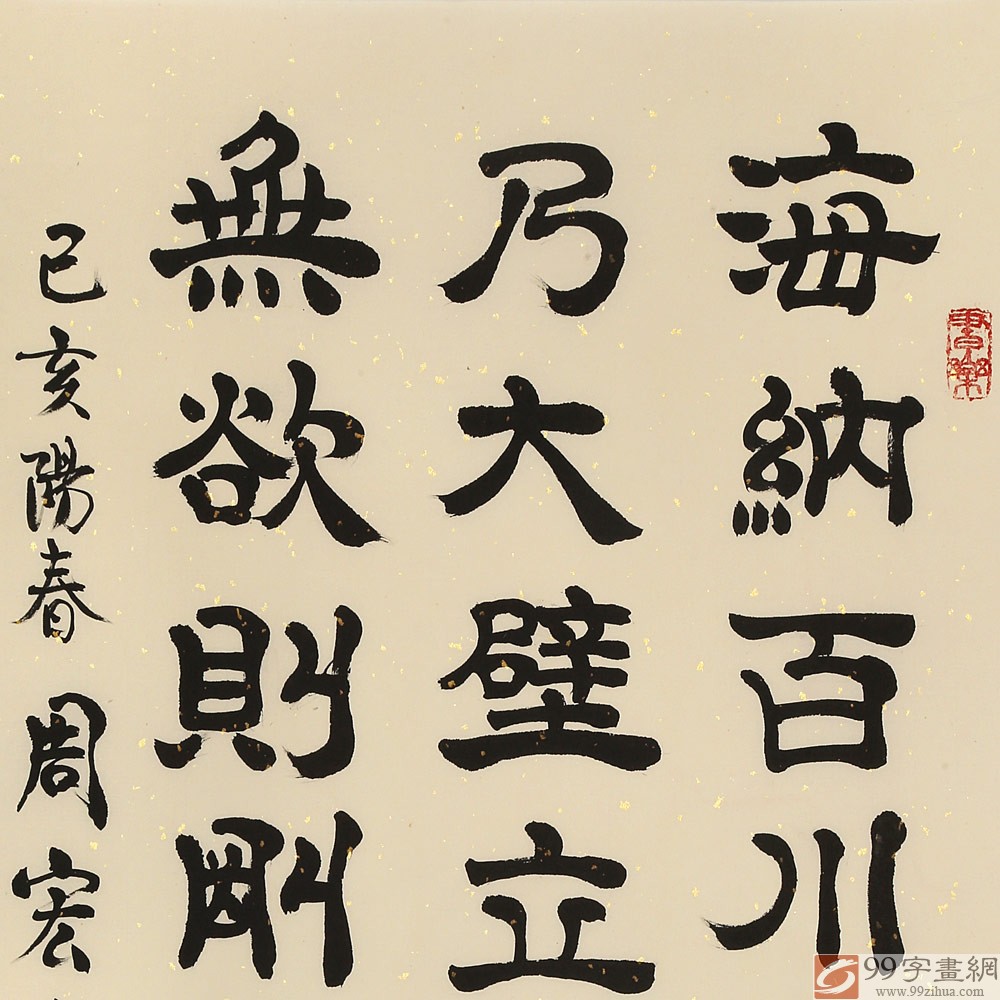 書樂
海納百川
乃大壁立
無欲則剛
己亥陽春周宏
99字畫網
www.99zihua.com